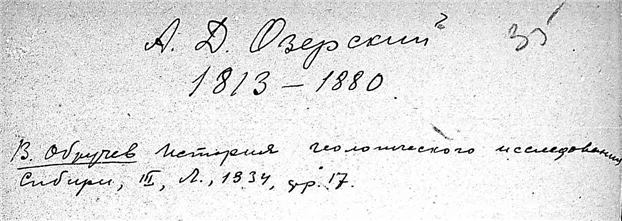 А. Д. Озерский² 35
1813 – 1880
В. Обручев История геологического исследования
Сибири, III, Л., 1934, стр. 17.